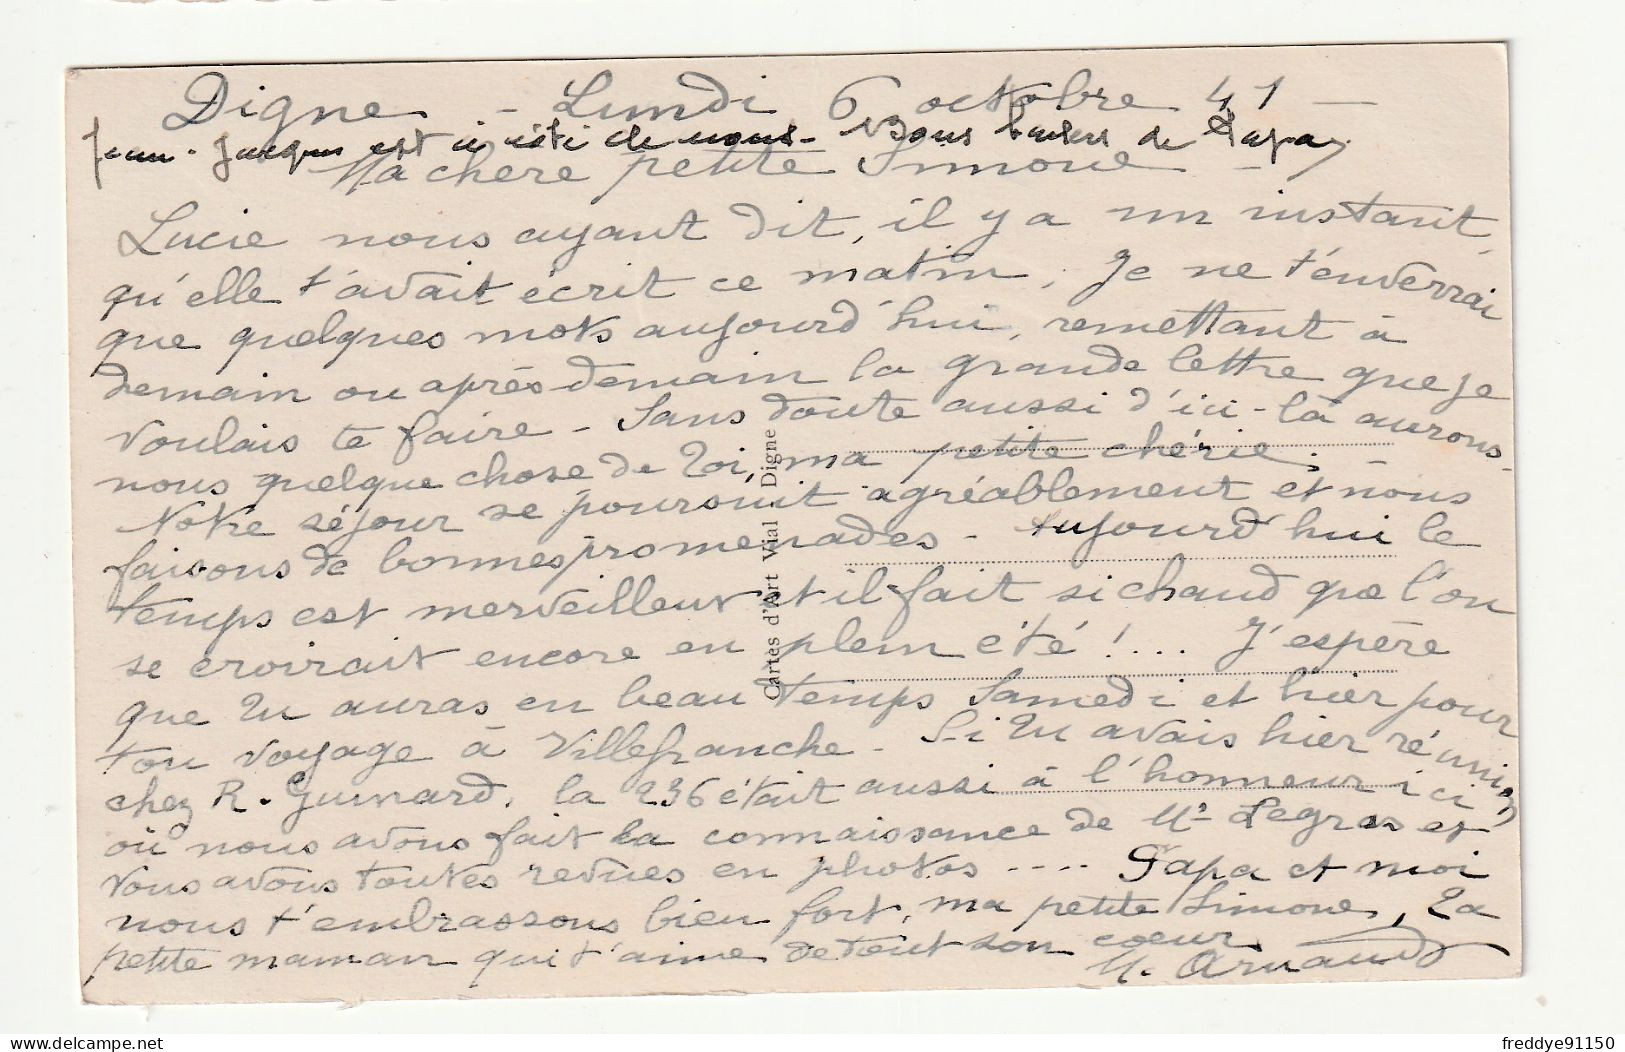 Digne - Lundi 6 octobre 41 -
Jean-Jacques est à côté de nous - Bons baisers de Papa
Ma chère petite Simone -
Lucie nous ayant dit, il y a un instant,
qu'elle t'avait écrit ce matin, je ne t'enverrai
que quelques mots aujourd'hui, remettant à
demain ou après-demain la grande lettre que je
voulais te faire - Sans doute aussi d'ici-là aurons-
nous quelque chose de toi, ma petite chérie. -
Notre séjour se poursuit agréablement et nous
faisons de bonnes promenades - Aujourd'hui le
temps est merveilleux et il fait si chaud que l'on
se croirait encore en plein été !... J'espère
que tu auras eu beau temps Samedi et hier pour
ton voyage à Villefranche - Si tu avais hier réunion
chez R. Guinard, la 236 était aussi à l'honneur ici
où nous avons fait la connaissance de Mr Legras et
vous avons toutes revues en photos .... Papa et moi
nous t'embrassons bien fort, ma petite Simone, ta
petite maman qui t'aime de tout son coeur
M. Arnaud
Cartes d'Art Vial Digne
freddye91150